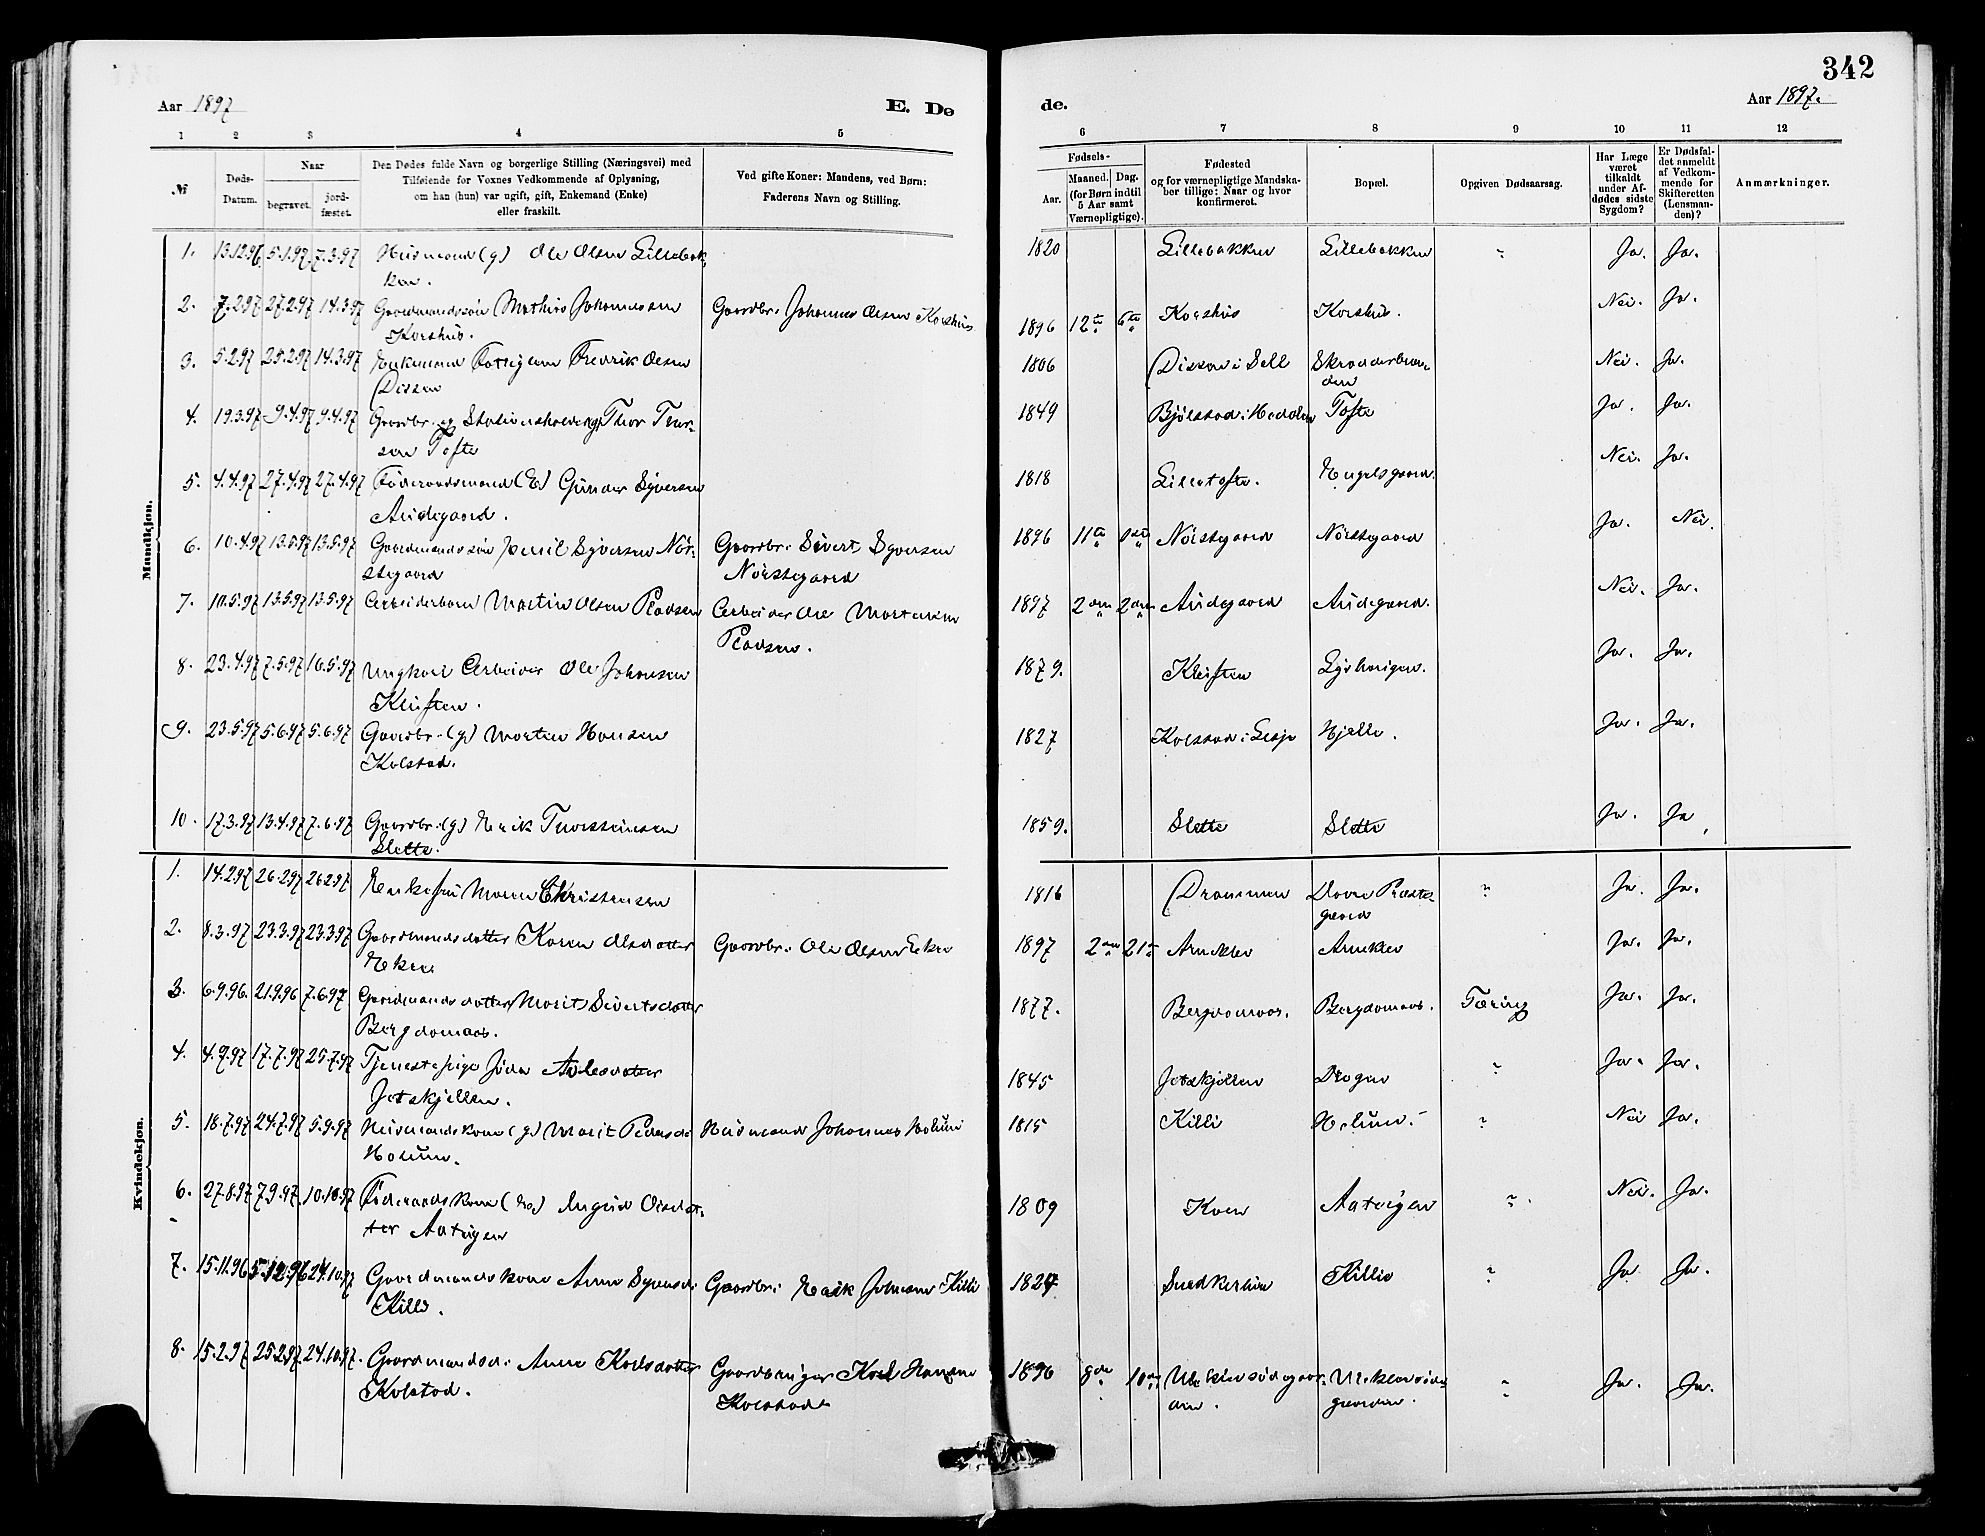 342
Aar 1897
E. Dø
de.
Aar 1897.
1 2 3 4 5
6 7 8 9 10 11 12
№
Døds-
Datum.
Naar
begravet.
jord-
fæstet.
Den Dødes fulde Navn og borgerlige Stilling (Næringsvei) med
Tilføiende for Voxnes Vedkommende af Oplysning,
om han (hun) var ugift, gift, Enkemand (Enke)
eller fraskilt.
Ved gifte Koner: Mandens, ved Børn:
Faderens Navn og Stilling.
Fødsels-
Aar.
Maaned. Dag.
(for Børn indtil
5 Aar samt
Værnepligtige).
Fødested
og for værnepligtige Mandska-
ber tillige: Naar og hvor
konfirmeret.
Bopæl.
Opgiven Dødsaarsag.
Har Læge
været
tilkaldt
under Af-
dødes sidste
Sygdom?
Er Dødsfal-
det anmeldt
af Vedkom-
mende for
Skifteretten
(Lensman-
den)?
Anmærkninger.
Mandkjøn.
1. 13.12.96. 5.1.97. 7.3.97 Husmand (g) Ole Olsen Lillebak-
ken. 1820 Lillebakken Lillebakken " Ja. Ja.
2. 7.2.97 27.2.97 14.3.97 Gaardmandssøn Mathias Johannessen
Korshus. Gaardbr. Johannes Olsen Korshus 1896 12te 6te Korshus Korshus. Nei. Ja.
3. 5.2.97 14.3.97 Enkemand Fattiglem Fredrik Olsen
1806 i Sell Nei. Ja.
4. 19.3.97 9.4.97 9.4.97 Gaardbr. og Stationsholder (g) Thor Thor-
sen Tofte 1849 Bjølstad i Hedalen Tofte Ja. Ja.
5. 4.4.97 27.4.97 27.4.97 Føderaadsmand (E) Gunder Syversen
Audegaard. 1818 Lilletofte. Engelsgaard. Nei. Ja.
6. 10.4.97 13.5.97 13.5.97 Gaardmandssøn Syversen Nør-
stegaard Gaardbr. Sivert Syversen
Nørstegaard 1896 11te Nørstegaard Nørstegaard Ja. Nei.
7. 10.5.97 13.5.97 13.5.97 Arbeiderbarn Martin Olsen Pladsen Arbeider Ole Mortensen
Pladsen. 1897 2den 2den Audegaard Audegaard. Nei. Ja.
8. 23.4.97 7.5.97 16.5.97 Ungkarl Arbeider Ole Johansen
Kleiften. 1879. Kleiften Ja. Ja.
9. 23.5.97 5.6.97 5.6.97 Gaardbr. (g) Morten Hansen
Kolstad. 1827 Kolstad i Lesje Hjelle. Ja. Ja.
10. 17.3.97 13.4.97 7.6.97 Gaardbr. (g) Erik Thorsteinsen
Slette. 1859. Slette Slette Ja. Ja
Kvindekjøn.
1. 14.2.97 26.2.97 26.2.97 Enkefru Maren Christensen 1816 Drammen Dovre Præste-
gaard " Ja. Ja.
2. 8.3.97 23.3.97 23.3.97 Gaardmandsdatter Karen Olsdatter
Ekre Gaardbr. Ole Olsen Ekre 1897 2den 21te Arneklev Arneklev Ja. Ja.
3. 6.9.96. 21.9.96 7.6.97 Gaardmandsdatter Marit Sivertsdatter
Bergdomaas. 1877. Bergdomaas. Bergdomaas. Tæring Ja. Ja.
4. 4.9.97 17.7.97 25.7.97 Tjenestepige
Jetskjellen. 1845 Jetskjellen " Ja. Ja.
5. 18.7.97 24.7.97 5.9.97 Husmandskone (g) Marit Pedersd.
Holum. Husmand Johannes Holum 1815 Killi Holum. " Nei Ja.
6. 27.8.97 7.9.97. 10.10.97 Føderaadskone Ingrid Olsdat-
ter Aateigen 1809 Aateigen " Nei. Ja.
7. 15.11.96 5.12.96 24.10.97 Gaardmandskone Anne Syversd.
Killi. Gaardbr. Erik Johnsen Killi Killie " Ja Ja.
8. 15.2.97 25.2.97 24.10.97. Gaardmandsd. Anne Karlsdatter
Kolstad. Gaardbruger Karl Hansen
Kolstad 1896 10de " Ja. Ja.